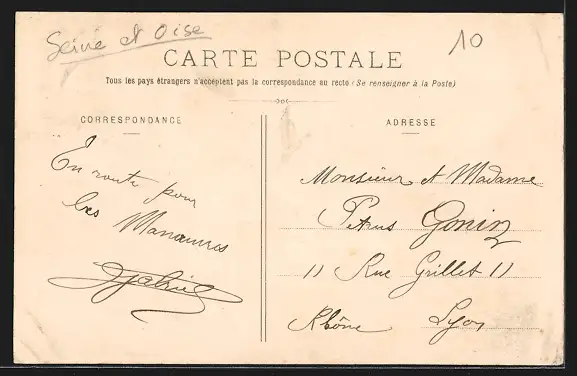 Seine et Oise
10
CARTE POSTALE
Tous les pays étrangers n'acceptent pas la correspondance au recto (Se renseigner à la Poste)
CORRESPONDANCE
En route pour
les Manœuvres
Gabriel
ADRESSE
Monsieur et Madame
Petrus Gonin
11 Rue Grillet 11
Rhône Lyon